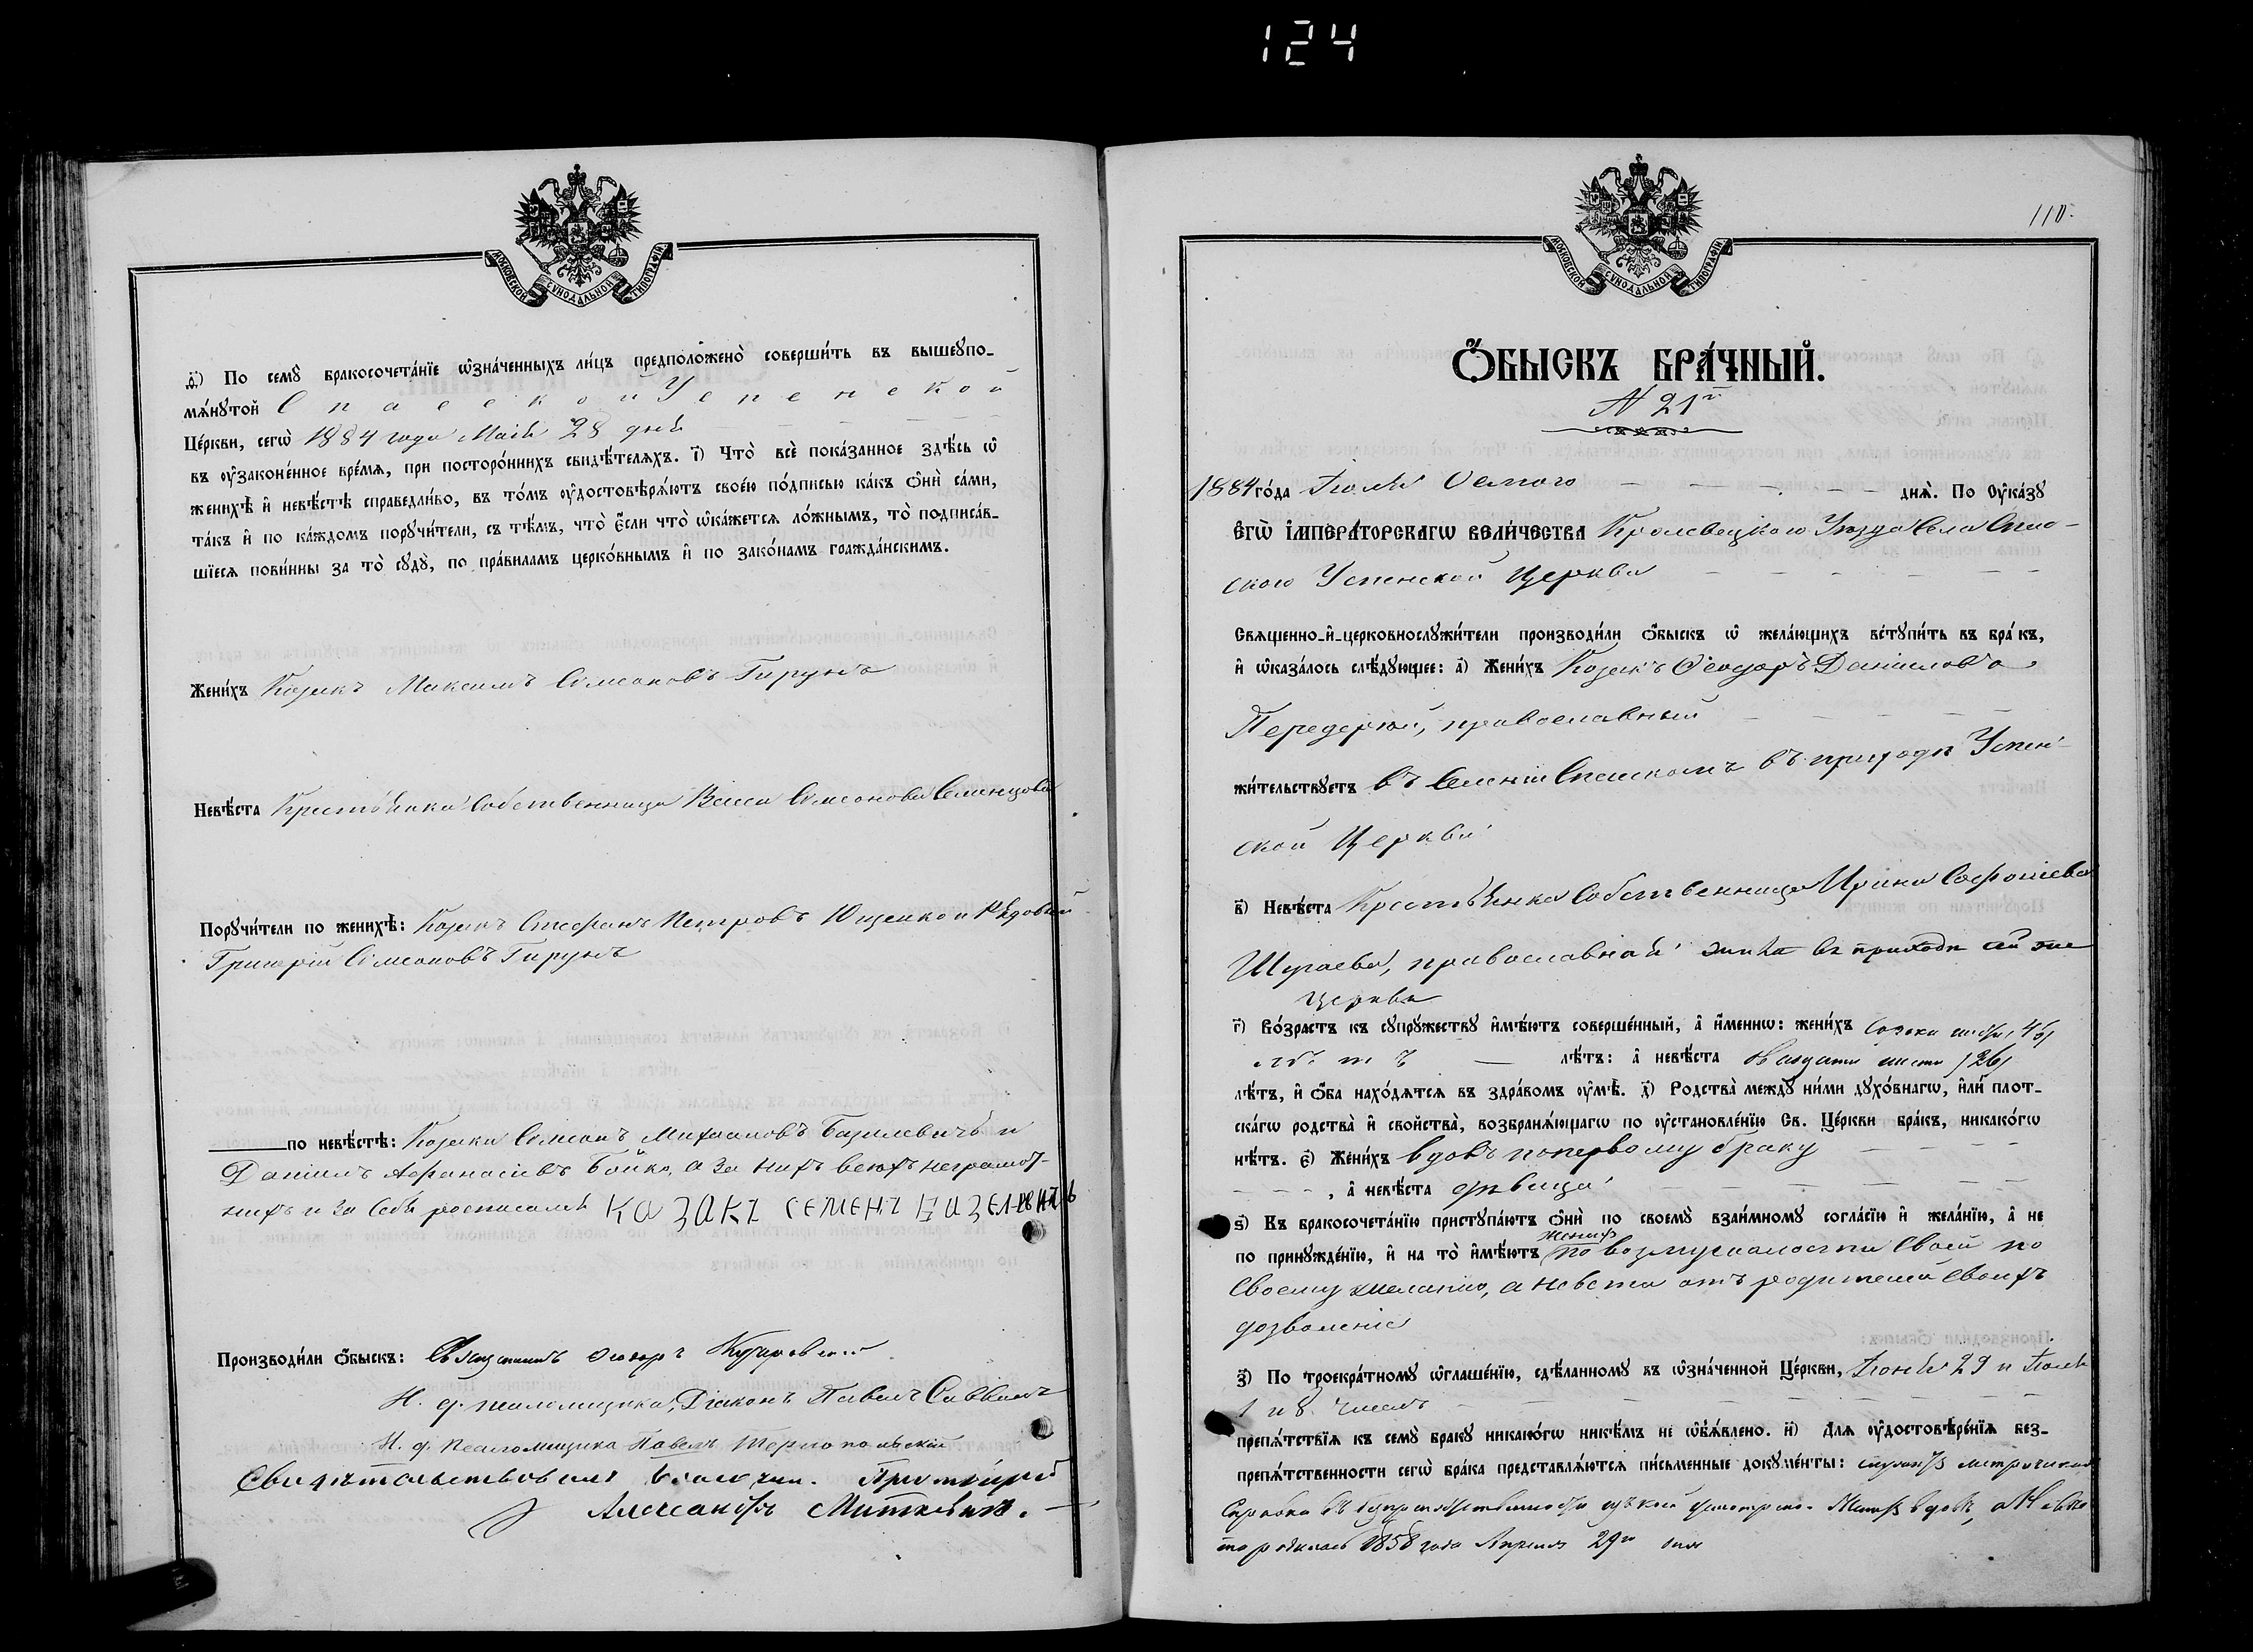 124
МОСКОВСКОЙ СУНОДАЛЬНОЙ ТИПОГРАФІИ
д҃і) По семꙋ̀ бракосочета́нїе ѡ҆зна́ченныхъ ли́цъ предположено̀ соверши́ть въ вышеꙋпо-
мѧ́нꙋтой Спасской Успенской
Це́ркви, сегѡ̀ 1884 года Маія 28 дня
въ ᲂу҆зако́ненное вре́мѧ, при посторо́ннихъ свидѣ́телѧхъ. і҃) Что̀ всѐ пока́занное здѣ́сь ѡ҆
женихѣ̀ и҆ невѣ́стѣ справедли́во, въ то́мъ ᲂу҆достовѣрѧ́ютъ свое́ю по́дписью ка́къ ѻ҆нѝ са́ми,
та́къ и҆ по ка́ждомъ порꙋчи́тели, съ тѣ́мъ, что̀ є҆́сли что̀ ѡ҆ка́жетсѧ ло́жнымъ, то̀ подписа́в-
шїесѧ пови́нны за то̀ сꙋдꙋ̀, по пра́виламъ церко́внымъ и҆ по зако́намъ гражда́нскимъ.
Жени́хъ Козакъ Максимъ Симеоновъ Гирунъ
Невѣ́ста Крестьянка Собственница Васса Симеонова Семенцова
Порꙋчи́тели по женихѣ̀: Козакъ Стефанъ Петровъ Ющенко и Рядовый
Григорій Симеоновъ Гирунъ
по невѣ́стѣ: Козаки Симеонъ Базилевичъ и
Даніилъ Афанасіевъ Бойко, а за нихъ всехъ неграмот-
ныхъ и за себя росписался КаЗАКЪ СЕМЕНЪ
Производи́ли ѻ҆́быскъ: Священникъ Ѳеодоръ
И. д. псаломщика, Діаконъ Павелъ Саввичъ
И. д. псаломщика Павелъ
Свидѣтельствовалъ Благочин. Протоіерей
Александръ
110.
МОСКОВСКОЙ СУНОДАЛЬНОЙ ТИПОГРАФІИ
Ѻ҆́БЫСКЪ БРА́ЧНЫЙ.
N 21й
1884 го́да Іюля Осмого дня̀. По Оу҆ка́зꙋ
Є҆ГѠ̀ І҆МПЕРА́ТОРСКАГѠ ВЕЛИ́ЧЕСТВА Кролевецкаго Уѣзда Села Спас-
ского Успенской Церкви
Свѧще́нно-и҆-церковнослꙋжи́тели производи́ли ѻ҆́быскъ ѡ҆ жела́ющихъ встꙋпи́ть въ бра́къ,
и҆ ѡ҆каза́лось слѣ́дꙋющее: а҃) Жени́хъ Козакъ Ѳеодоръ Даніиловъ
Передерій, православный
жи́тельствꙋетъ въ Селеніи Спасскомъ въ приходѣ Успен-
ской Церкви
в҃) Невѣ́ста Крестьянка Собственница Ирина
Шугаева, православная живетъ въ приходѣ сей же
Церкви
г҃) Во́зрастъ къ сꙋпрꙋ́жествꙋ и҆мѣ́ютъ соверше́нный, а҆ и҆́меннѡ: жени́хъ сорока
лѣтъ лѣ́тъ: а҆ невѣ́ста двадцати шести /26/
лѣ́тъ, и҆ ѻ҆́ба нахо́дѧтсѧ въ здра́вомъ ᲂу҆мѣ̀. д҃) Родства̀ междꙋ̀ ни́ми дꙋхо́внагѡ, и҆лѝ пло́т-
ска́гѡ родства̀ и҆ сво́йства̀, возбранѧ́ющагѡ по ᲂу҆становле́нїю Св. Це́ркви бра́къ, никако́гѡ
нѣ́тъ. є҃) Жени́хъ вдовъ по первому браку
, а҆ невѣ́ста дѣвица
ѕ҃) Къ бракосочета́нїю пристꙋпа́ютъ ѻ҆нѝ по своемꙋ̀ взаи́мномꙋ согла́сїю и҆ жела́нїю, а҆ не
по принꙋжде́нїю, и҆ на то̀ и҆мѣ́ютъ женихъ по возмужалости своей по
своему желанію, а невеста отъ родителей своихъ
дозволеніе
з҃) По троекра́тномꙋ ѡ҆глаше́нїю, сдѣ́ланномꙋ въ ѡ҆зна́ченной Це́ркви, Іюня 29 и Іюля
1 и 8 чиселъ
препѧ́тствїѧ къ семꙋ̀ бра́кꙋ никако́гѡ никѣ́мъ не ѡ҆б̾ѧ́влено. и҃) Длѧ ᲂу҆достовѣре́нїѧ без-
препѧ́тственности сегѡ̀ бра́ка представлѧ́ютсѧ пи́сьменные докꙋме́нты:
Справка Женихъ вдовъ, а Невѣс-
та родилась 1858 года Апреля 29го дня